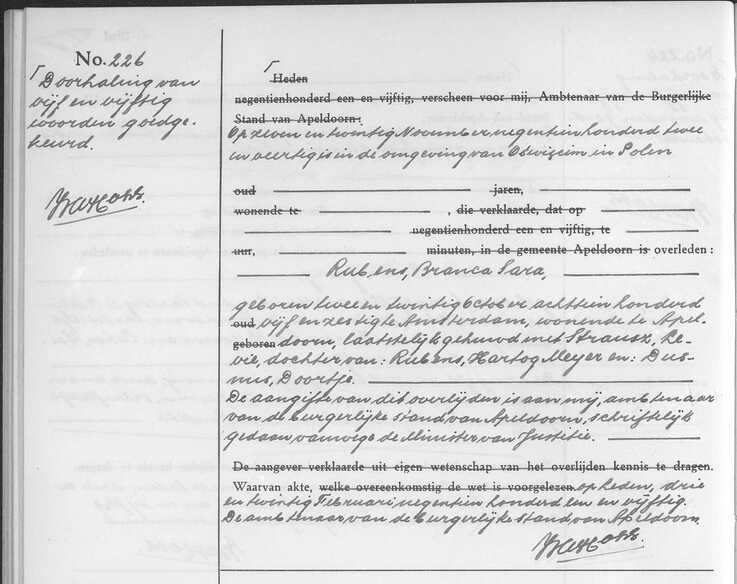 No. 226
Doorhaling van
vijf en vijftig
woorden goedge-
keurd.
Heden
negentienhonderd een en vijftig, verscheen voor mij, Ambtenaar van de Burgerlijke
Stand van Apeldoorn:
Op zeven en twintig November negentienhonderd twee
en veertig is in de omgeving van Oswiecim in Polen
oud jaren,
wonende te , die verklaarde, dat op
negentienhonderd een en vijftig, te
uur, minuten, in de gemeente Apeldoorn is overleden:
Rubens, Branca Sara,
geboren twee en twintig October achttienhonderd
oud vijf en zestig te Amsterdam, wonende te Apel-
geboren doorn, laatstelijk gehuwd met Strausz, Le-
vie, dochter van: Rubens, Hartog Meyer en: Dus-
nus, Doortje.
De aangifte van dit overlijden is aan mij, ambtenaar
van de burgerlijke stand van Apeldoorn, schriftelijk
gedaan vanwege de Minister van Justitie.
De aangever verklaarde uit eigen wetenschap van het overlijden kennis te dragen.
Waarvan akte, welke overeenkomstig de wet is voorgelezen. op heden, drie
en twintig Februari negentienhonderd een en vijftig.
De ambtenaar van de burgerlijke stand van Apeldoorn.